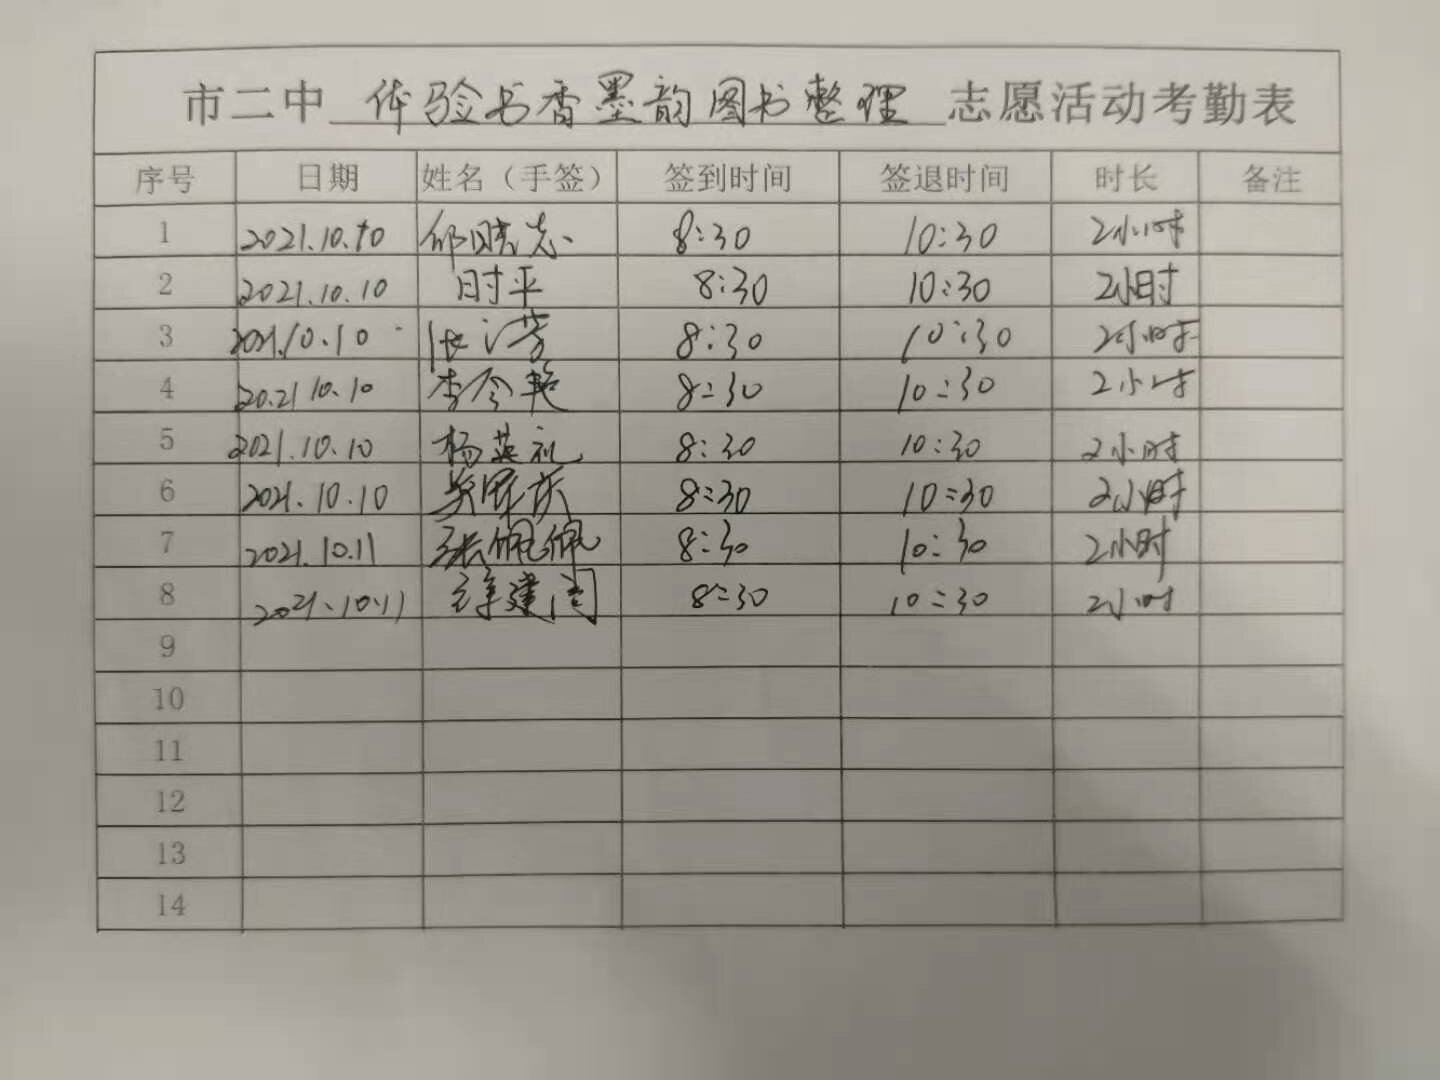 市二中 体验书香墨韵图书整理 志愿活动考勤表
序号 日期 姓名（手签） 签到时间 签退时间 时长 备注
1 2021.10.10 邱晓志 8:30 10:30 2小时
2 2021.10.10 时平 8:30 10:30 2小时
3 2021.10.10 张 芳 8:30 10:30 2小时
4 2021.10.10 李令艳 8:30 10:30 2小时
5 2021.10.10 杨英礼 8:30 10:30 2小时
6 2021.10.10 8:30 10:30 2小时
7 2021.10.11 张佩佩 8:30 10:30 2小时
8 2021.10.11 建阁 8:30 10:30 2小时
9
10
11
12
13
14